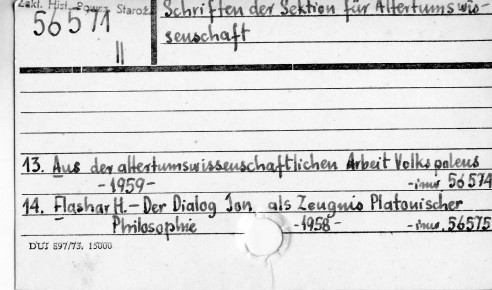 Zakł. Hist. Powsz. Staroż.
56571
II
Schriften der Sektion für Altertumswis-
senschaft
13. Aus der altertumswissenschaftlichen Arbeit Volkspolens
-1959- -inw. 56574
14. Flashar H.- Der Dialog Ion als Zeugnis Platonischer
Philosophie -1958- -inw. 56575
DUJ 897/73, 15000